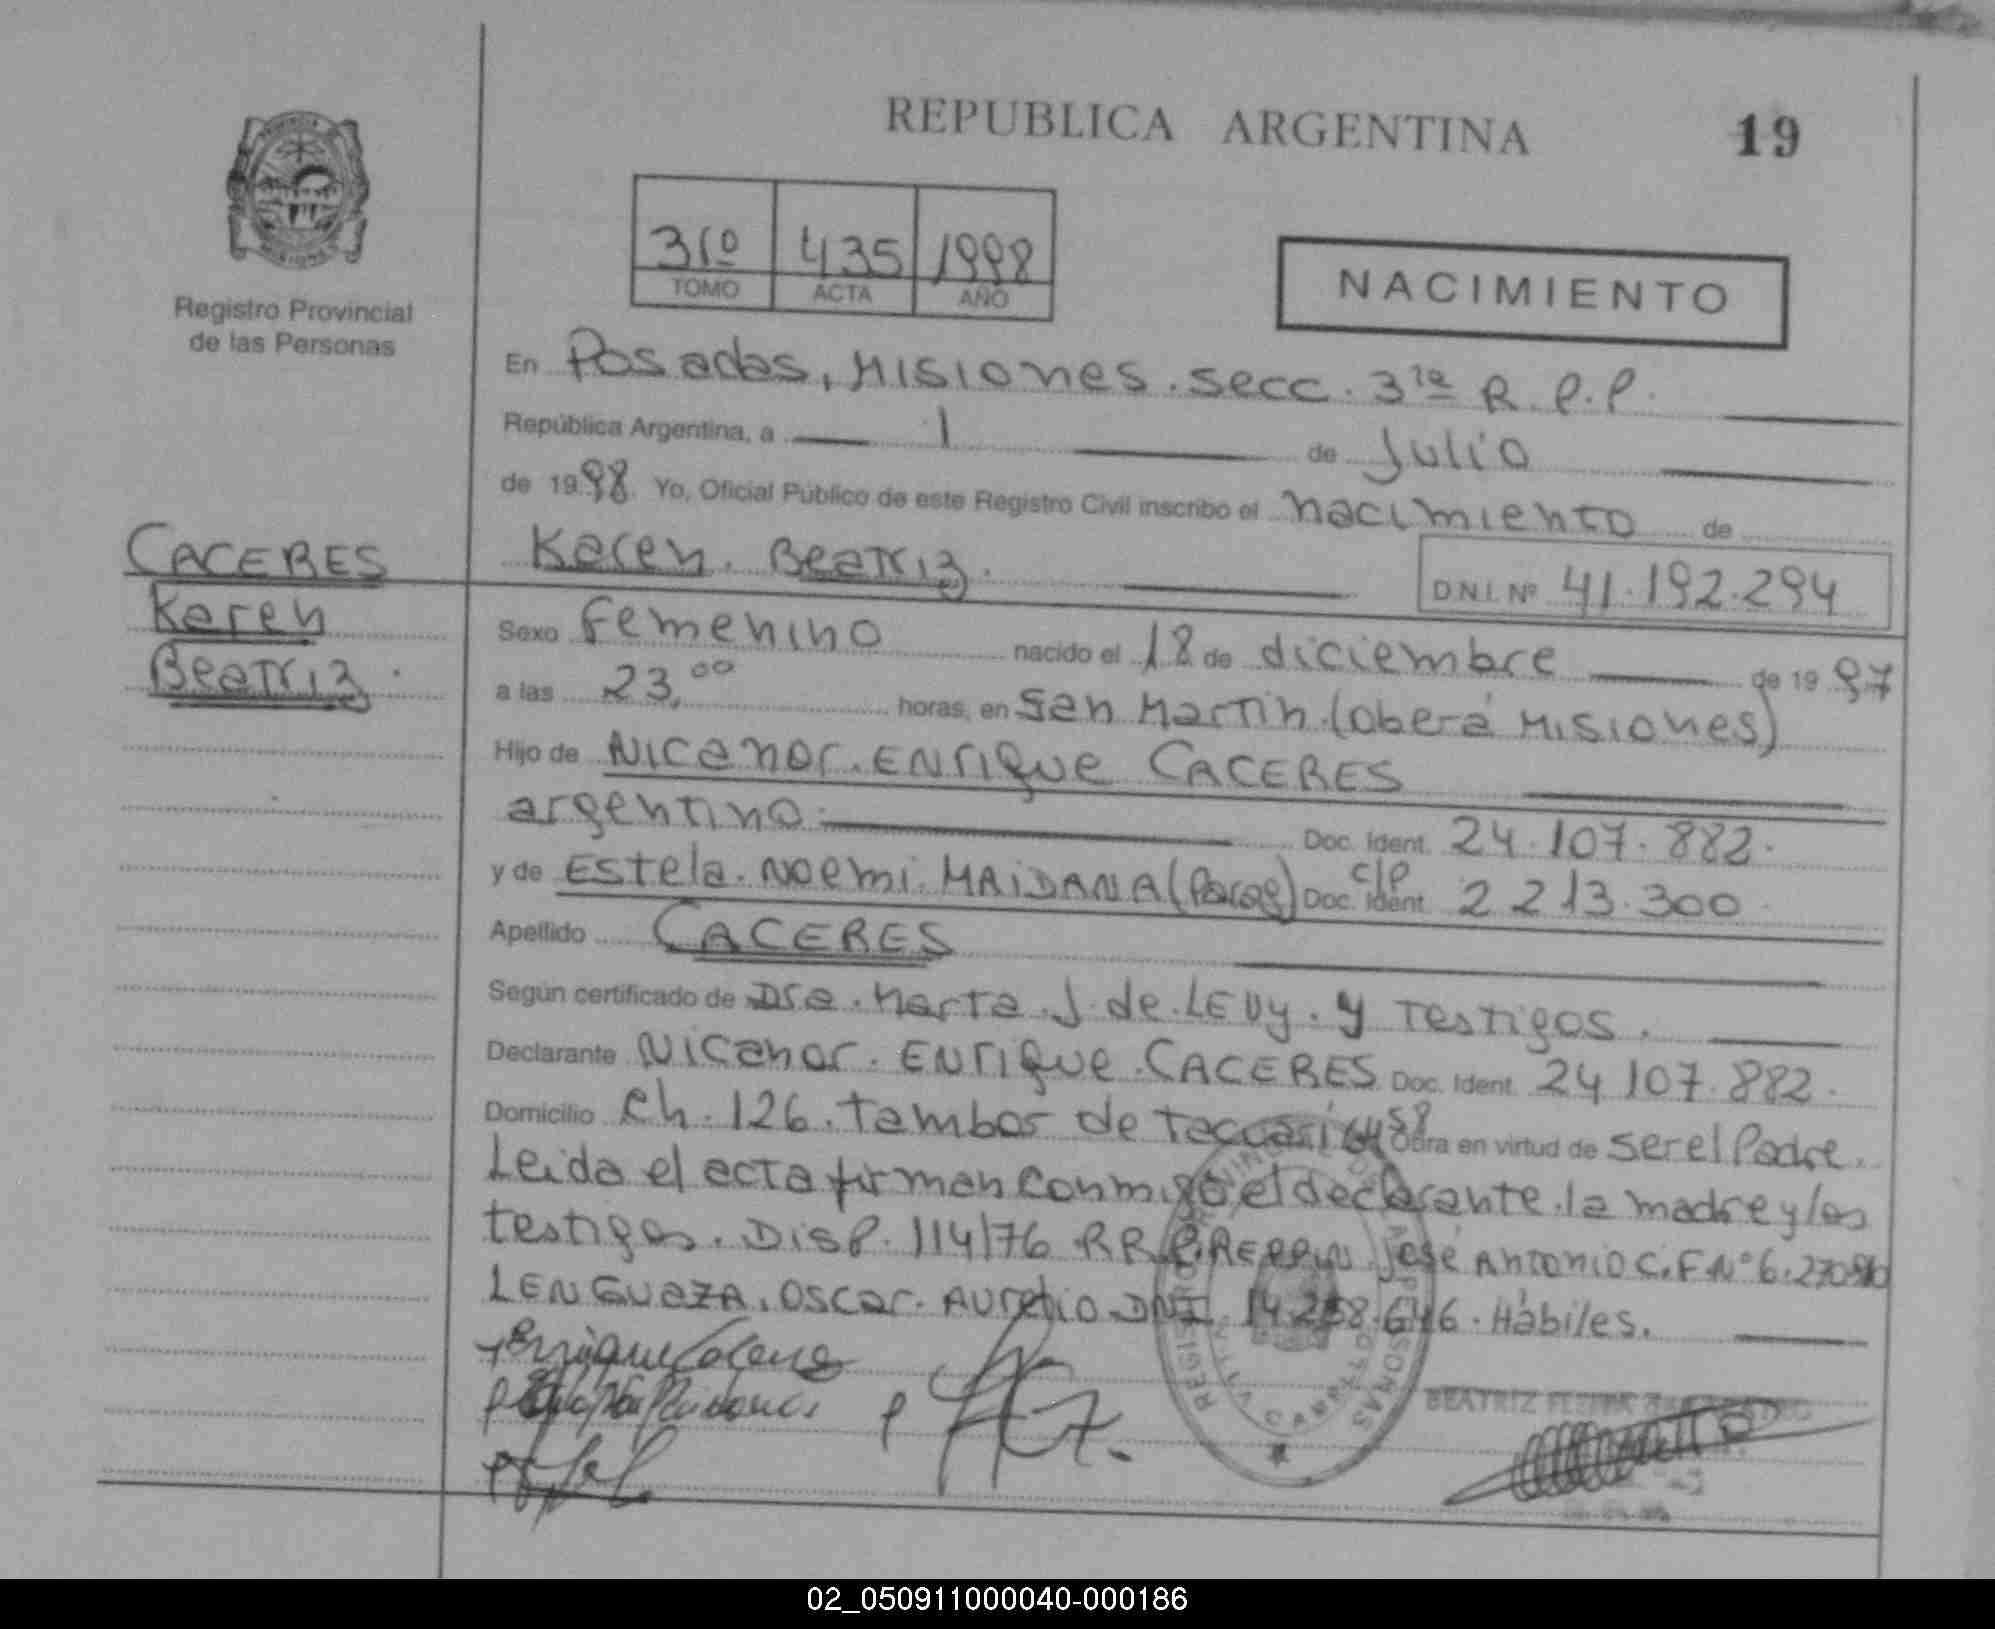 REPUBLICA ARGENTINA
19
Registro Provincial
de las Personas
31º 435 1998
TOMO ACTA AÑO
NACIMIENTO
En Posadas, Misiones. secc. 3ra R. P. P.
República Argentina, a 1 de Julio
de 1998. Yo, Oficial Público de este Registro Civil inscribo el nacimiento de
Karen. Beatriz.
D.N.I. Nº 41.192.294
CACERES
Karen
Beatriz.
Sexo Femenino nacido el 18 de diciembre de 1997
a las 23,00 horas, en San Martin. (oberá Misiones)
Hijo de Nicanor. Enrique CACERES
argentino. Doc. Ident. 24.107.882.
y de Estela. Noemi. MAIDANA (Parag) Doc. Ident. c/p 2 213.300.
Apellido CACERES
Según certificado de Dra. Marta. J. de. LEVy. y Testigos.
Declarante Nicanor. Enrique. CACERES Doc. Ident. 24 107.882.
Domicilio Ch. 126. Tambor de Tacuarí Obra en virtud de ser el Padre.
Leida el acta firman conmigo el declarante. la madre y los
testigos. Disp. 114/76 R.R.P. José Antonio C.F Nº 6.
LENGUAZA, Oscar. Aurelio DNI 646. Hábiles.
REGISTRO PROVINCIAL DE LAS PERSONAS
BEATRIZ
02_050911000040-000186